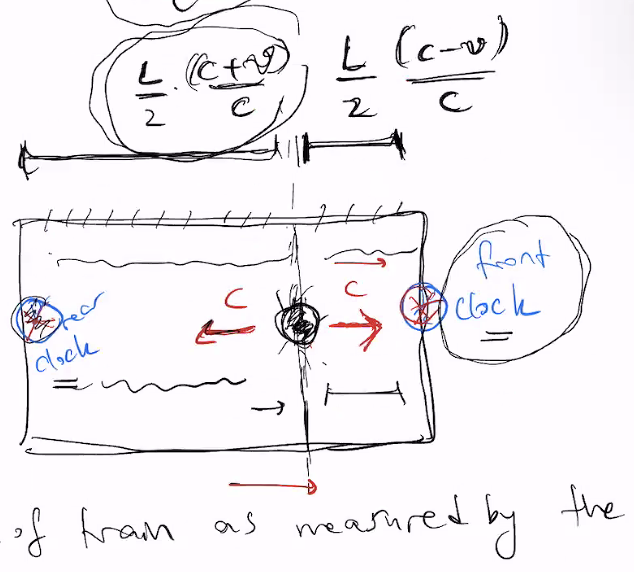 L/2 · (c+v)/c    L/2 (c-v)/c
c c
front
clock
rear
clock
of train as measured by the